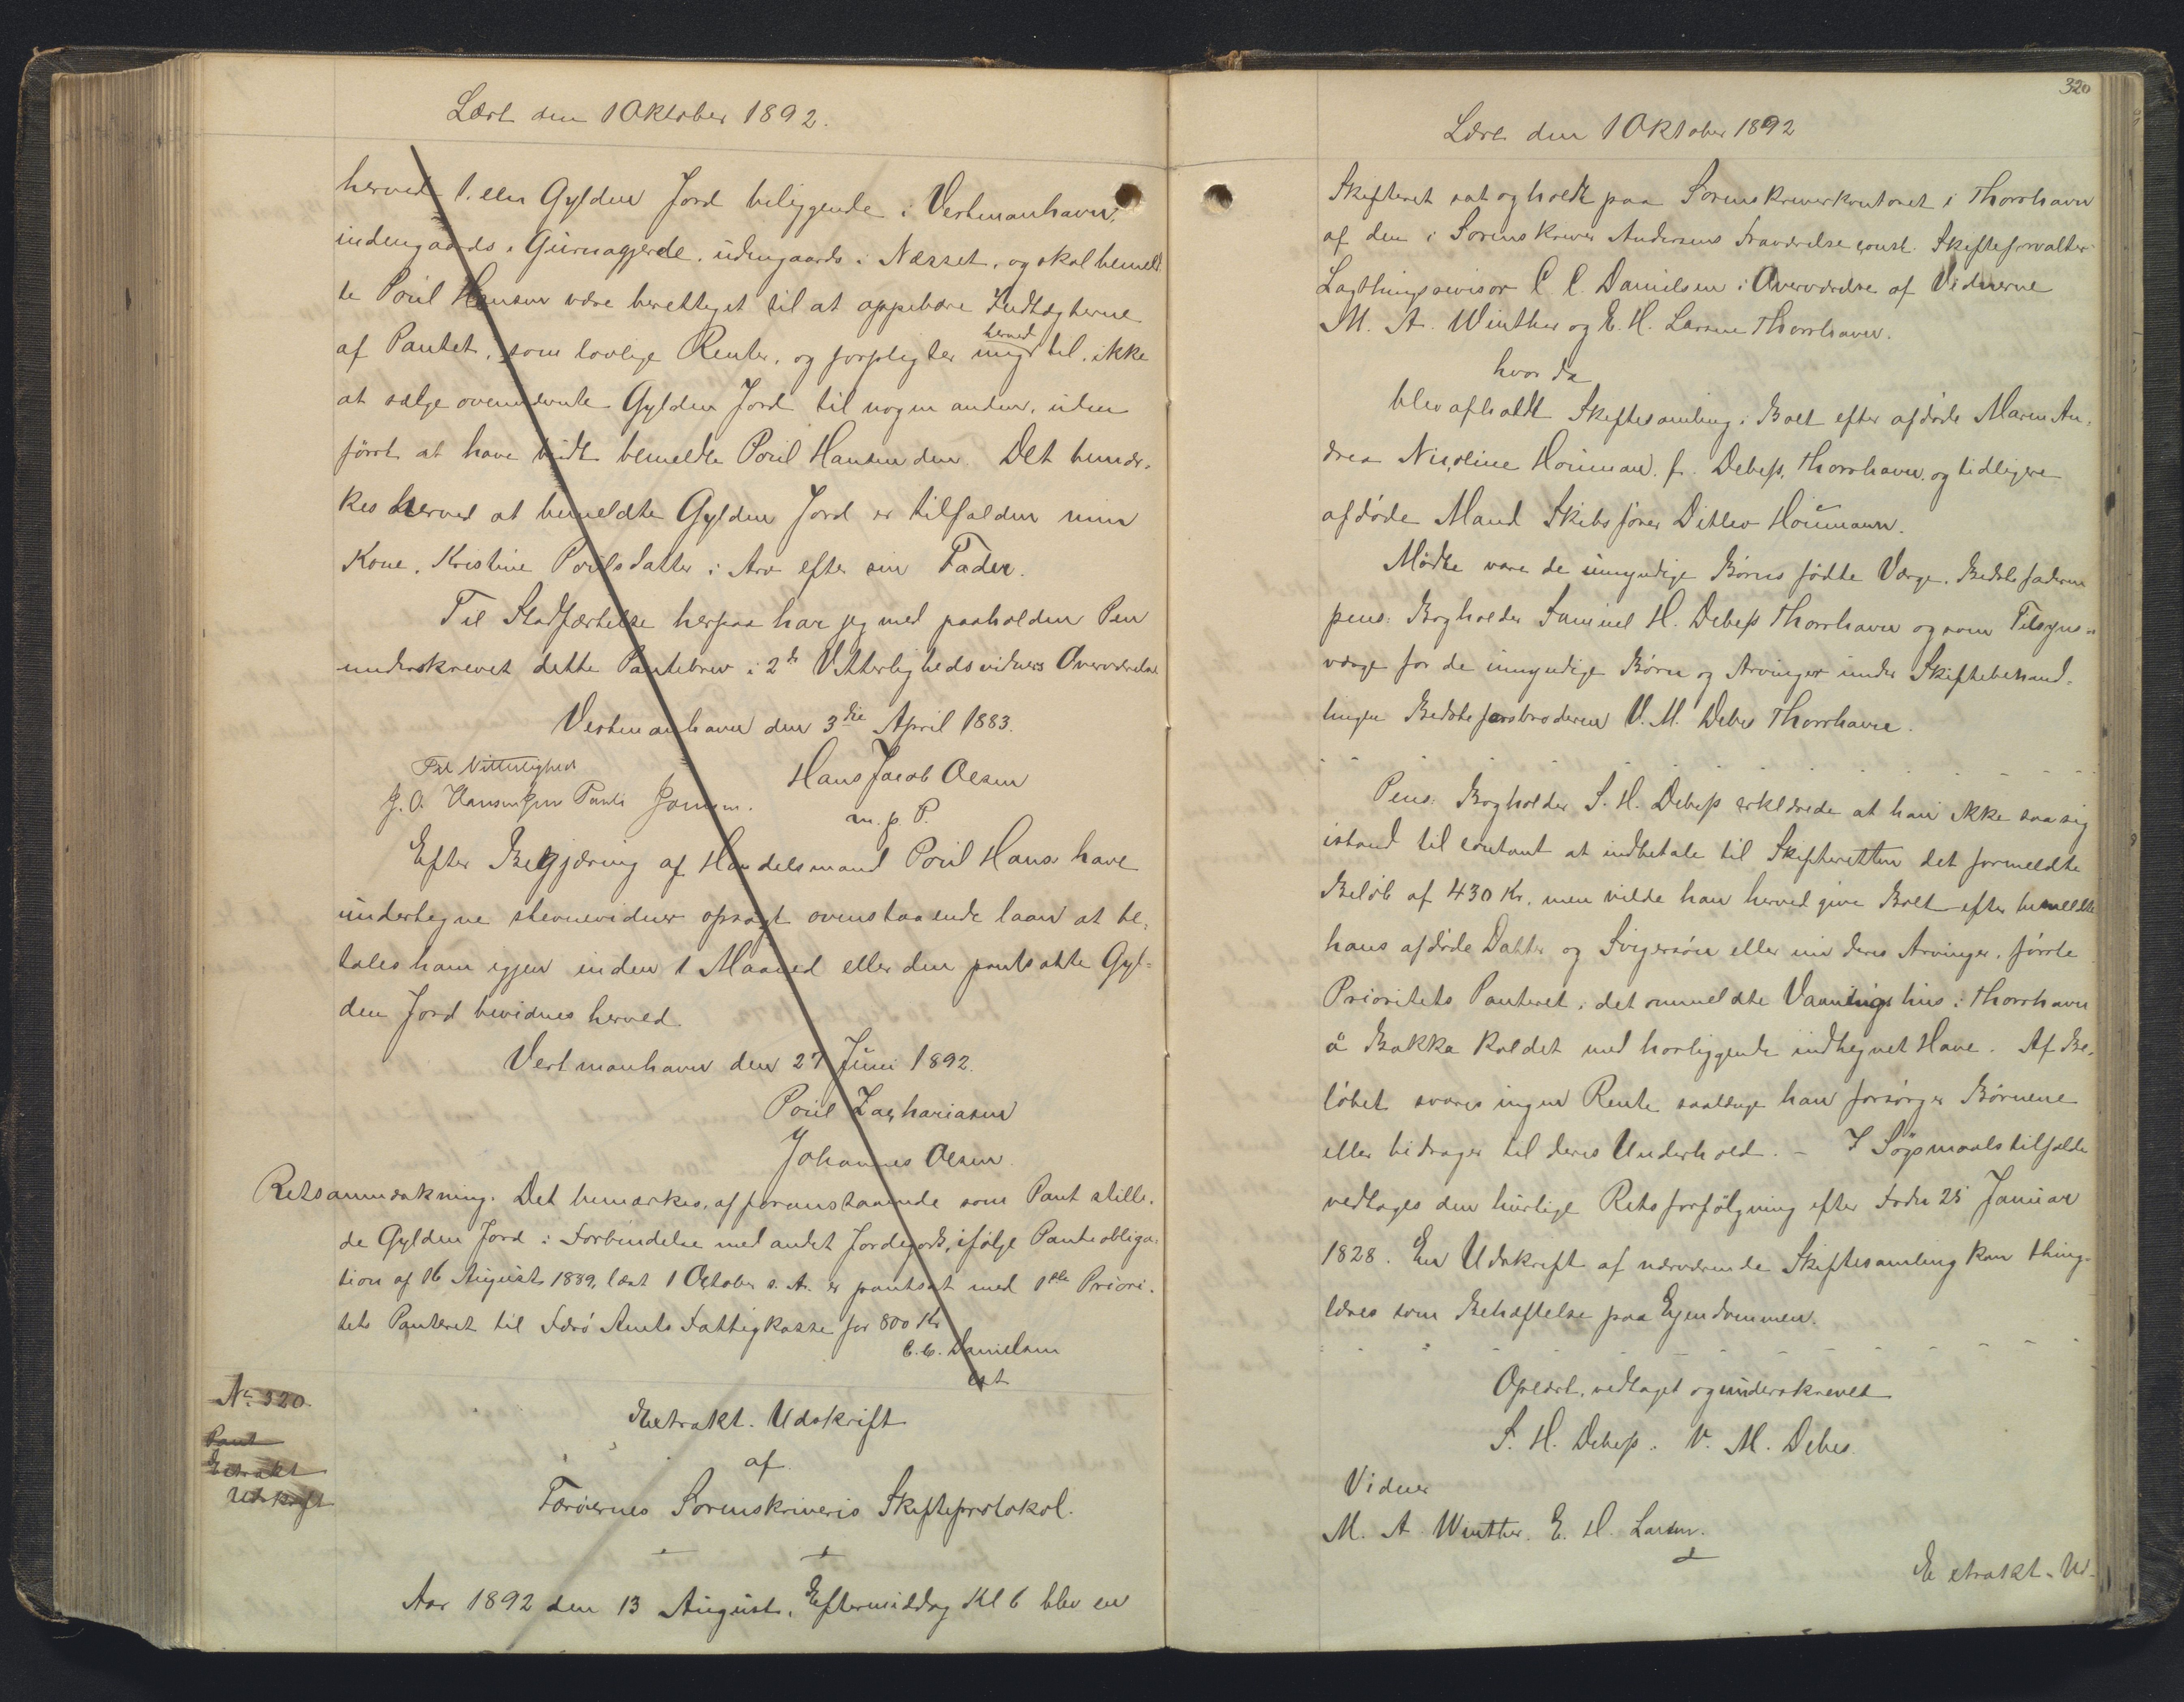 Læst den 1 Oktober 1892.
herved 1. een Gylden Jord beliggende i Vestmanhavn,
indengaards i Gürnagjerde, udengaards i Næsset, og skal bemeld
te Poül Hansen være berettiget til at oppebære Indtægterne
af Pantet, som lovlige Renter, og forpligter mig herved til, ikke
at sælge ovennævnte Gylden Jord til nogen anden, uden
först at have büdt bemeldte Poül Hansen den. Det bemær-
kes herved at bemeldte Gylden Jord er tilfalden min
Kone, Kristine Poülsdatter i Arv efter sin Fader.
Til Stadfæstelse herpaa har jeg med paaholden Pen
underskrevet dette Pantebrev i 2de Vitterlighedsvidners Overværelse
Vestmanhavn den 3die April 1883.
Til Vitterlighed
Hans Jacob Olsen
J. O. Hansen Jens Pauli Joensen.
m. p. P.
Efter Begjæring af Handelsmand Poül Hans have
undertegne stevnevidner opsagt ovenstaaende laan at be-
tales ham igjen inden 1 Maaned eller den pantsatte Gyl-
den Jord bevidnes herved
Vestmanhavn den 27 Juni 1892.
Poül Zachariasen
Johannes Olsen.
Retsanmærkning. Det bemærkes, at foranstaaende som Pant stille-
de Gylden Jord i Forbindelse med andet Jordegods, ifølge Panteobliga-
tion af 16 August 1889, læst 1 October s. A. er pantsat med 1ste Priori-
tets Panteret til Færö Amts Fattigkasse for 800 Kr
C. C. Danielsen
cst
No 320.
Pant
Extrakt
Udskrift
Extrakt. Udskrift
af
Færöernes Sorenskriveris Skifteprotokol.
Aar 1892 den 13 August, Eftermiddag Kl 6 blev en
320
Læst den 1 Oktober 1892
Skifteret sat og holdt paa Sorenskriverkontoret i Thorshavn
af den i Sorenskriver Andersens Fraværelse const. Skifteforvalter
Lagthingsrevisor C. C. Danielsen i Overværelse af Vidnerne
M. A. Winther og E. H. Larsen Thorshavn.
hvor da
blev afholdt Skiftesamling i Boet efter afdöde Maren An-
drea Nicoline Hoümann f. Debess, Thorshavn, og tidligere
afdöde Mand Skibsförer Ditlev Hoümann.
Mödte vare de ümyndige Börns födte Værge, Bedstefaderen
pens: Bogholder Samuel H. Debess Thorshavn og som Tilsyns-
værge for de ümyndige Börn og Arvinger under Skiftebehand-
lingen Bedstefarsbroderen V. M. Debes Thorshavn.
Pens: Bogholder S. H. Debess erklærede at han ikke saa sig
istand til contant at indbetale til Skifteretten det formeldte
Belöb af 430 Kr, men vilde han herved give Boet efter bemeldte
hans afdöde Datter og Svigersön eller nu deres Arvinger, förste
Prioritets Panteret i det ommeldte Vaaningshus i Thorshavn
å Bakka kaldet med hosliggende indhegnet Have. Af Be-
löbet svares ingen Rente saalænge han forsörger Börnene
eller bidrager til deres Underhold. – I Sögsmaalstilfælde
vedtages den hurtige Retsforfölgning efter Frdn 25 Januar
1828. En Udskrift af nærværende Skiftesamling kan thing-
læses som Behæftelse paa Ejendommen.
Oplæst, vedtaget og underskrevet
S. H. Debess. V. M. Debes.
Vidner
M. A. Winther. E. H. Larsen.
Extrakt-Ud-